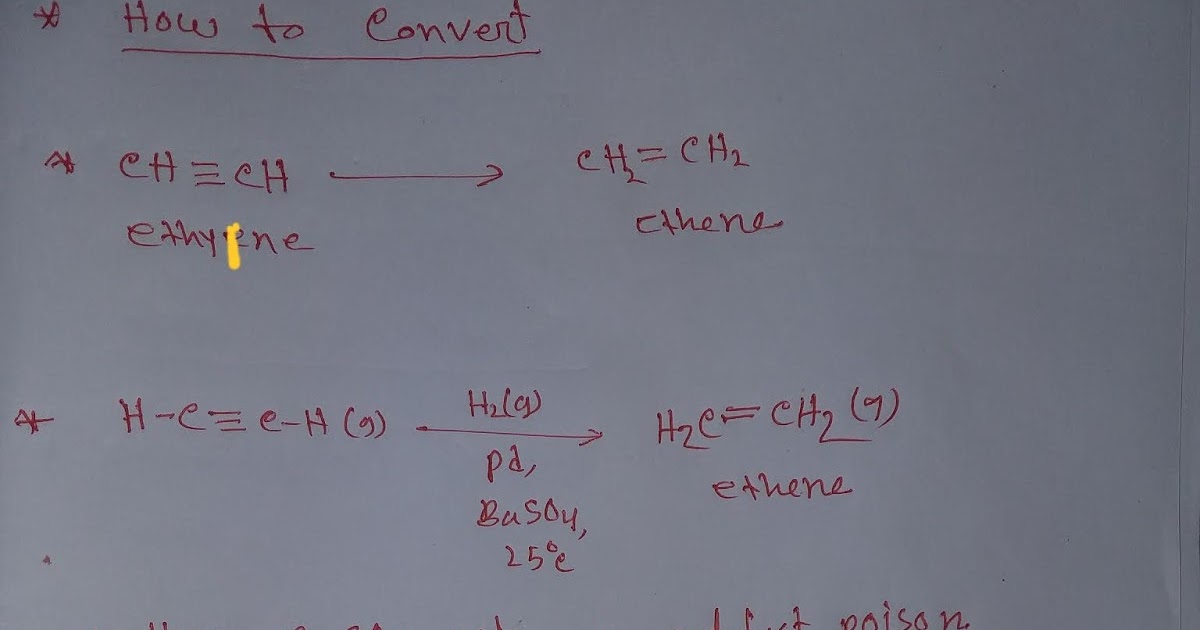 * How to Convert
* CH≡CH ⟶ CH₂=CH₂
ethyne Ethene
* H-C≡C-H(g) ⟶ H₂C=CH₂(g)
H₂(g)
Pd,
BaSO₄,
25°C
ethene
poison